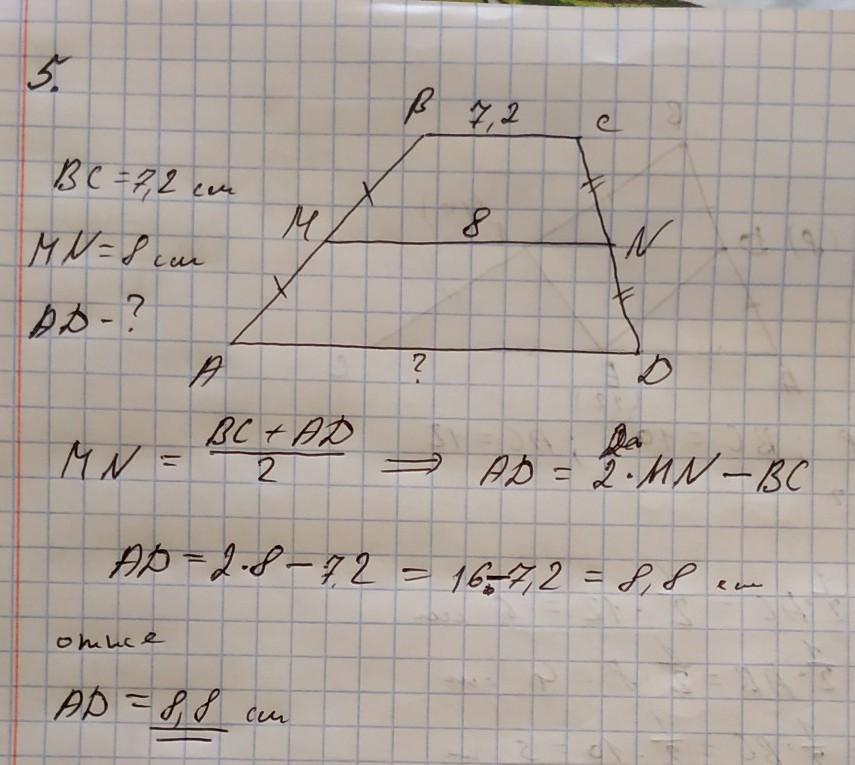 5.
B 7,2 C
BC = 7,2 см
M 8 N
MN = 8 см
AD - ?
A ? D
MN = (BC + AD) / 2 ⟹ AD = 2·MN − BC
AD = 2·8 − 7,2 = 16 − 7,2 = 8,8 см
отже
AD = 8,8 см